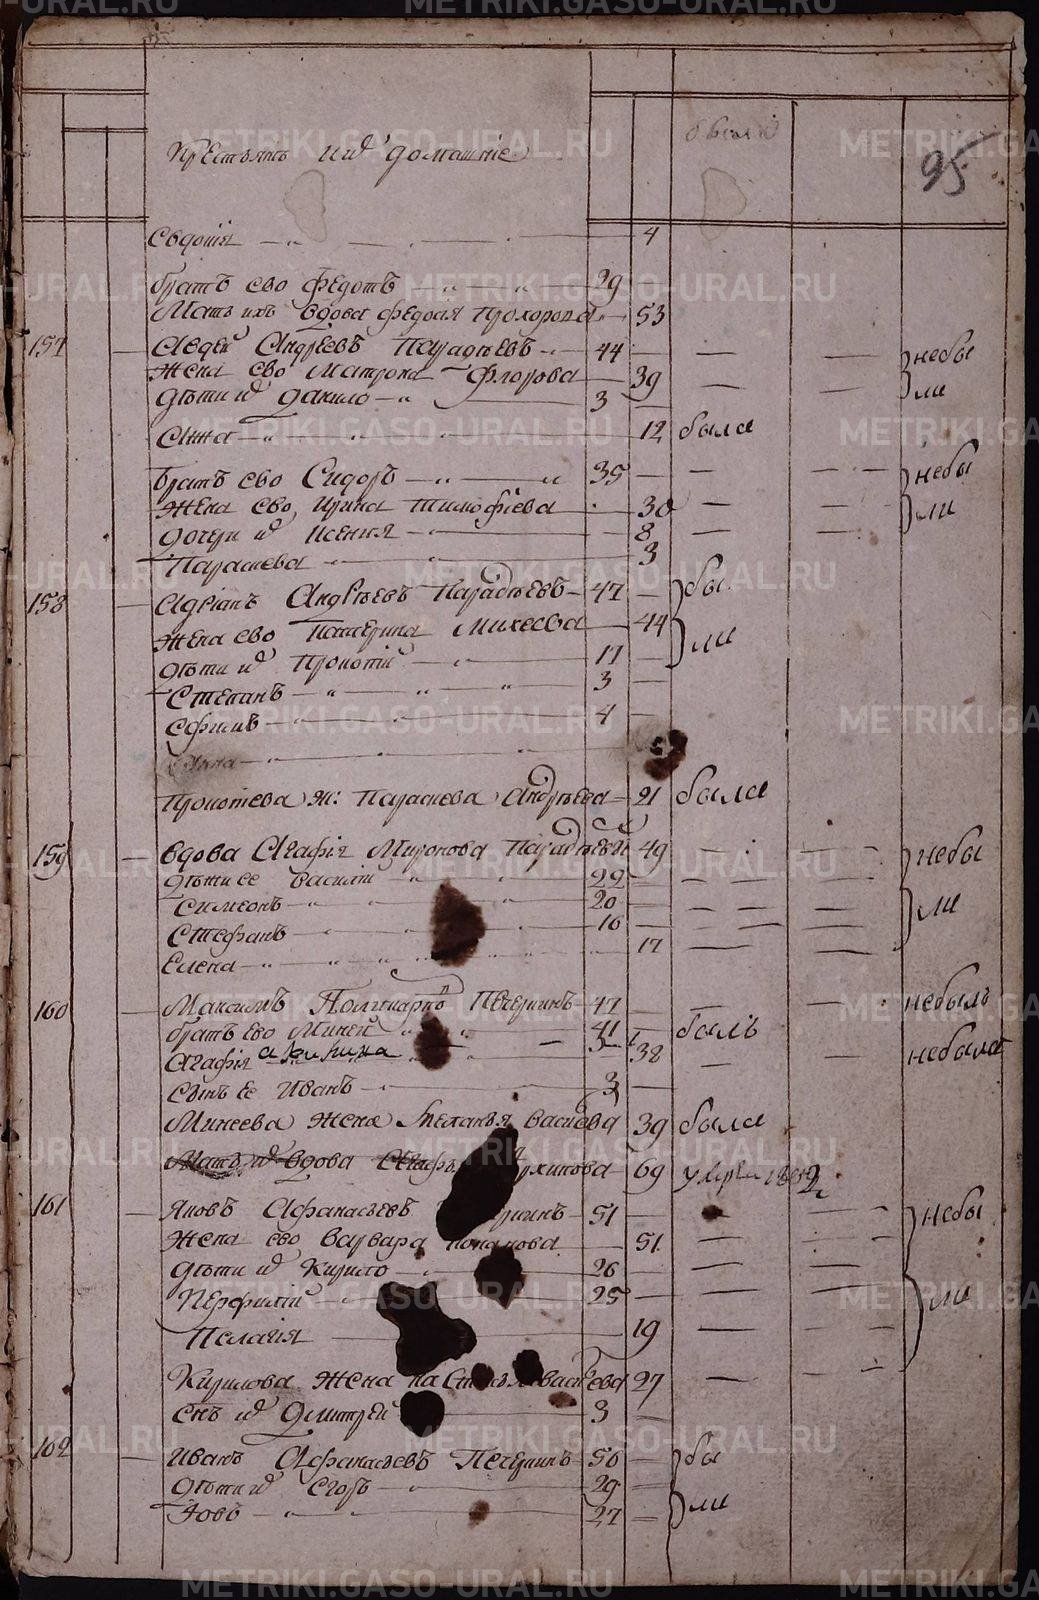 METRIKI.GASO-URAL.RU
бывши
95
Крестьянѣ ихъ домашніе
Евдокія 4
братъ его Федотъ 29
Мать ихъ вдова Федосія Прохорова 53
157 Авдей Андреевъ 44 небы
Жена его Матрона Флорова 39 ли
дѣти ихъ Данило 3
Анна 12 была
братъ его Сидоръ 35 небы
Жена его Ирина Тимофѣева 30 ли
дочери ихъ Ксенія 8
Параскева 3
158 Адріанъ Андрѣевъ 47 бы
Жена его Катерина Михеева 44 ли
дѣти ихъ Прокопій 17
Степанъ 3
Ефимъ 1
Анна
Прокопева ж: Параскева Андрѣева 21 была
159 вдова Агафія Миронова 49 небы
дѣти ее Василій 22 ли
Симеонъ 20
Стефанъ 16
Елена 17
160 Максимъ Поликарповъ Печеркинъ 47 небылъ
братъ его Миней 41 былъ
Агафія 38 небыла
Сынъ ее Иванъ 3
Минеева жена Меланья Василева 39 была
Мать ихъ вдова 69 умерла 1802
161 Яковъ Афанасьевъ 51 небы
Жена его Варвара 51 ли
дѣти ихъ Кирило 26
Перфилій 25
Пелагія 19
Кирилова жена 27
снъ ихъ Дмитрей 3
162 Иванъ Афанасьевъ Печеркинъ 56 бы
дѣти ихъ Егоръ 29 ли
Іовъ 27